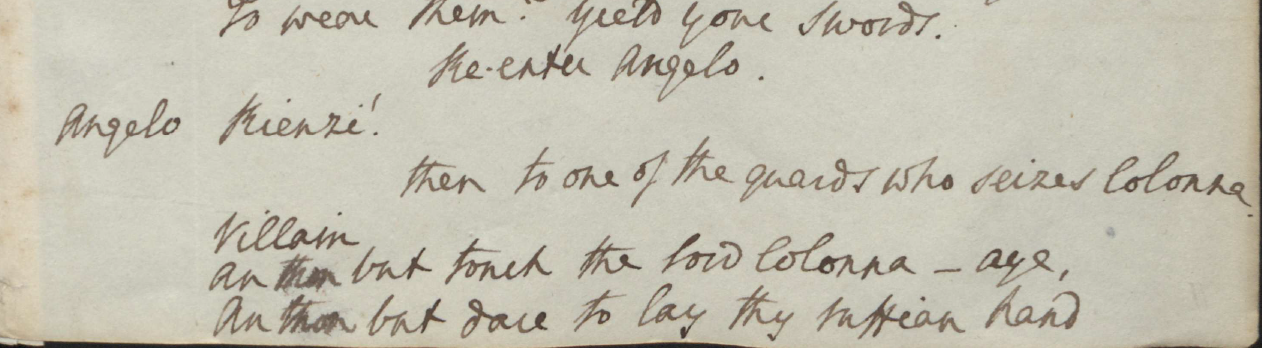 To wear them? Yield your swords.
Re-enter Angelo.
Angelo Rienzi!
then to one of the guards who seizes Colonna.
Villain
an thou but touch the lord Colonna – aye,
An thou but dare to lay thy ruffian hand